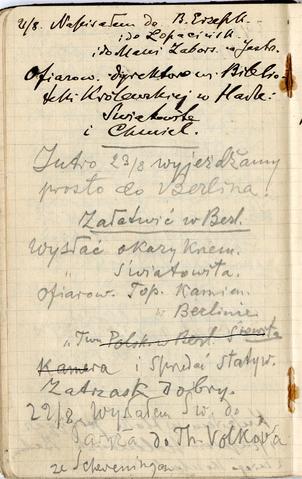 21/8. Napisałem do B. Erzepk.
i do Łopacińsk.
i do Mani Zabors. w Jastr.
Ofiarow. dyrektorowi Biblio-
teki Królewskiej w Hadze:
Światowita
i Chmiel.
Jutro 22/8 wyjeżdżamy
prosto do Berlina!
Załatwić w Berl.
Wysłać okazy Krzem.
" Światowita.
Ofiarow. Top. Kamien.
w Berlinie
„Tow. Polsk. w Berl. Światowita
Kamera i sprzedać statyw.
Zatrzask Dobry.
22/8. Wysłałem Św. do
Paryża do Th. Volkov'a
ze Scheveningen